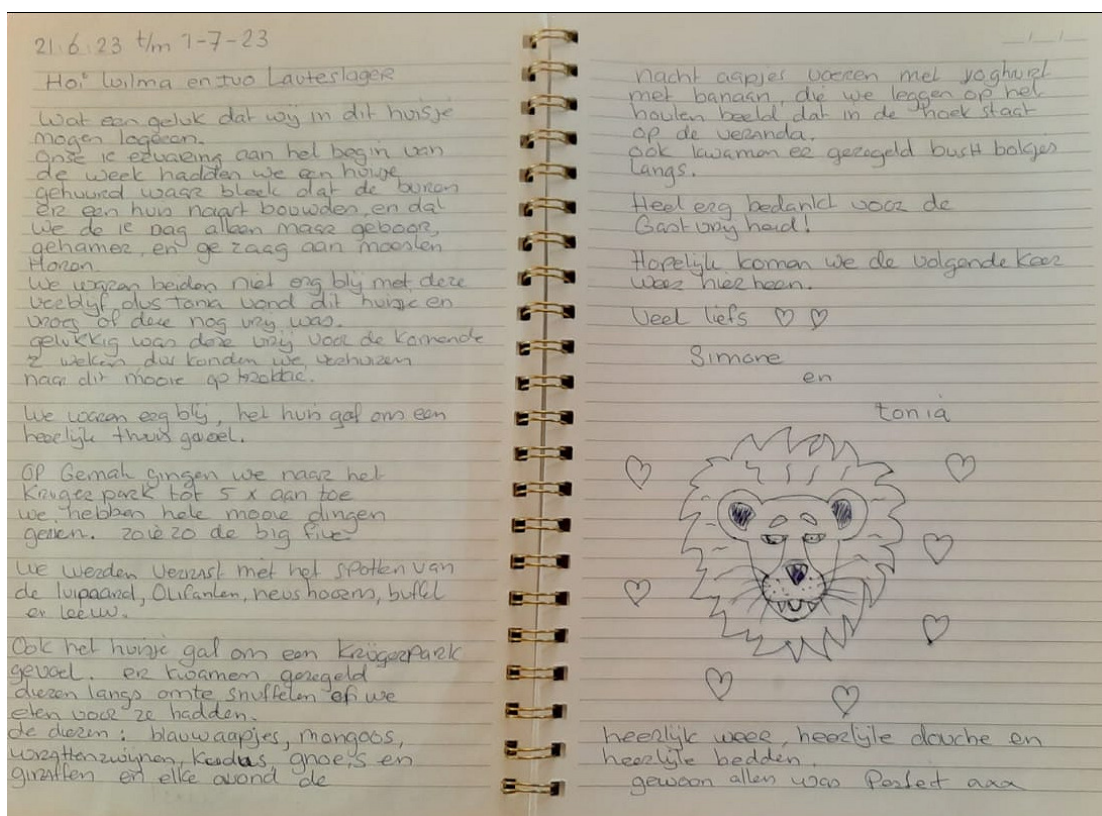 21.6.23 t/m 1-7-23
Hoi Wilma en Ivo Lauteslager
Wat een geluk dat wij in dit huisje
mogen logeren.
Onze 1e ervaring aan het begin van
de week hadden we een huisje
gehuurd waar bleek dat de buren
er een huis naast bouwden, en dat
we de 1e dag alleen maar geboor,
gehamer, en gezaag aan moesten
Horen.
We waren beiden niet erg blij met deze
verblijf dus tonia vond dit huisje en
vroeg of deze nog vrij was.
gelukkig was deze vrij voor de komende
2 weken dus konden we verhuizen
naar dit mooie optrekkie.
We waren erg blij, het huis gaf ons een
heerlijk thuis gevoel.
Op Gemak gingen we naar het
Kruger park tot 5 x aan toe
we hebben hele mooie dingen
gezien. zoiezo de big five.
We werden verrast met het spotten van
de luipaard, Olifanten, neushoorns, buffel
en leeuw.
Ook het huisje gaf ons een Krügerpark
gevoel. er kwamen geregeld
dieren langs om te snuffelen of we
eten voor ze hadden.
de dieren: blauwaapjes, mongoos,
wrattenzwijnen, Kudus, gnoe's en
giraffen en elke avond de
nacht aapjes voeren met yoghurt
met banaan, die we leggen op het
houten beeld dat in de hoek staat
op de veranda.
ook kwamen er geregeld bush bokjes
langs.
Heel erg bedankt voor de
Gastvrij heid!
Hopelijk komen we de volgende keer
weer hier heen.
Veel liefs ♡ ♡
Simone
en
tonia
heerlijk weer, heerlijke douche en
heerlijke bedden.
gewoon alles was Perfect xxx